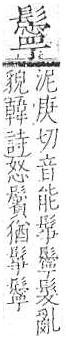 鬡
泥庚切音能鬇鬡髮亂
貌韓詩怒鬢猶鬇鬡